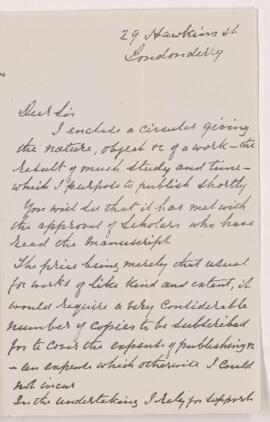 29 Hawkins st
Londonderry
Dear Sir
I enclose a circular giving
the nature, object &c of a work – the
result of much study and time –
which I purpose to publish shortly
You will see that it has met with
the approval of Scholars who have
read the manuscript
The price being merely that usual
for works of like kind and extent, it
would require a very considerable
number of copies to be subscribed
for to cover the expense of publishing &c
– an expense which otherwise I could
not incur
In the undertaking I rely for support